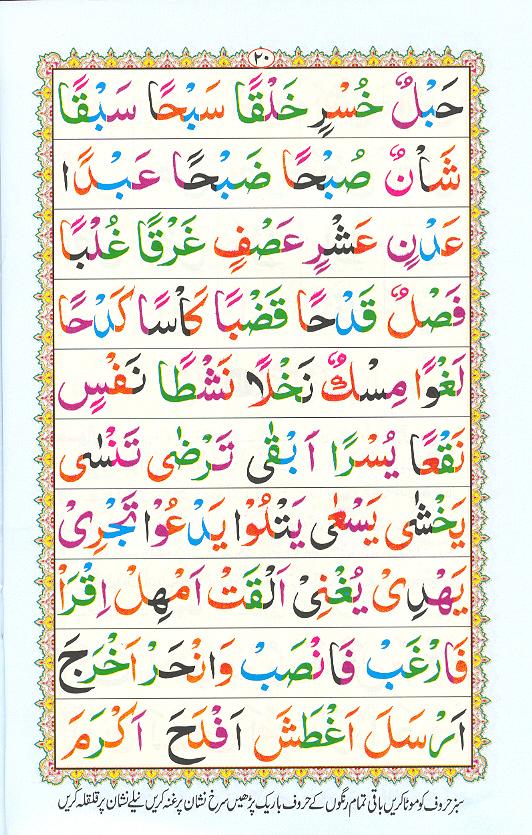 ٢٠
حَبْلٌ خُسْرٍ خَلْقًا سَبْحًا سَبْقًا
شَأْنٌ صُبْحًا ضَبْحًا عَبْدًا
عَدْنٍ عَشْرٍ عَصْفٍ غَرْقًا غُلْبًا
فَصْلٌ قَدْحًا قَضْبًا كَأْسًا كَدْحًا
لَغْوًا مِسْكٌ نَخْلًا نَشْطًا نَفْسٍ
نَقْعًا يُسْرًا اَبْقٰى تَرْضٰى تَنْسٰى
يَخْشٰى يَسْعٰى يَتْلُوْا يَدْعُوْا تَجْرِىْ
يَهْدِىْ يُغْنِىْ اَلْقَتْ اَمْهِلْ اِقْرَاْ
فَارْغَبْ فَانْصَبْ وَانْحَرْ اَخْرَجَ
اَرْسَلَ اَغْطَشَ اَفْلَحَ اَكْرَمَ
سبز حروف کو موٹا کریں باقی تمام رنگوں کے حروف باریک پڑھیں سرخ نشان پر غنہ کریں نیلے نشان پر قلقلہ کریں